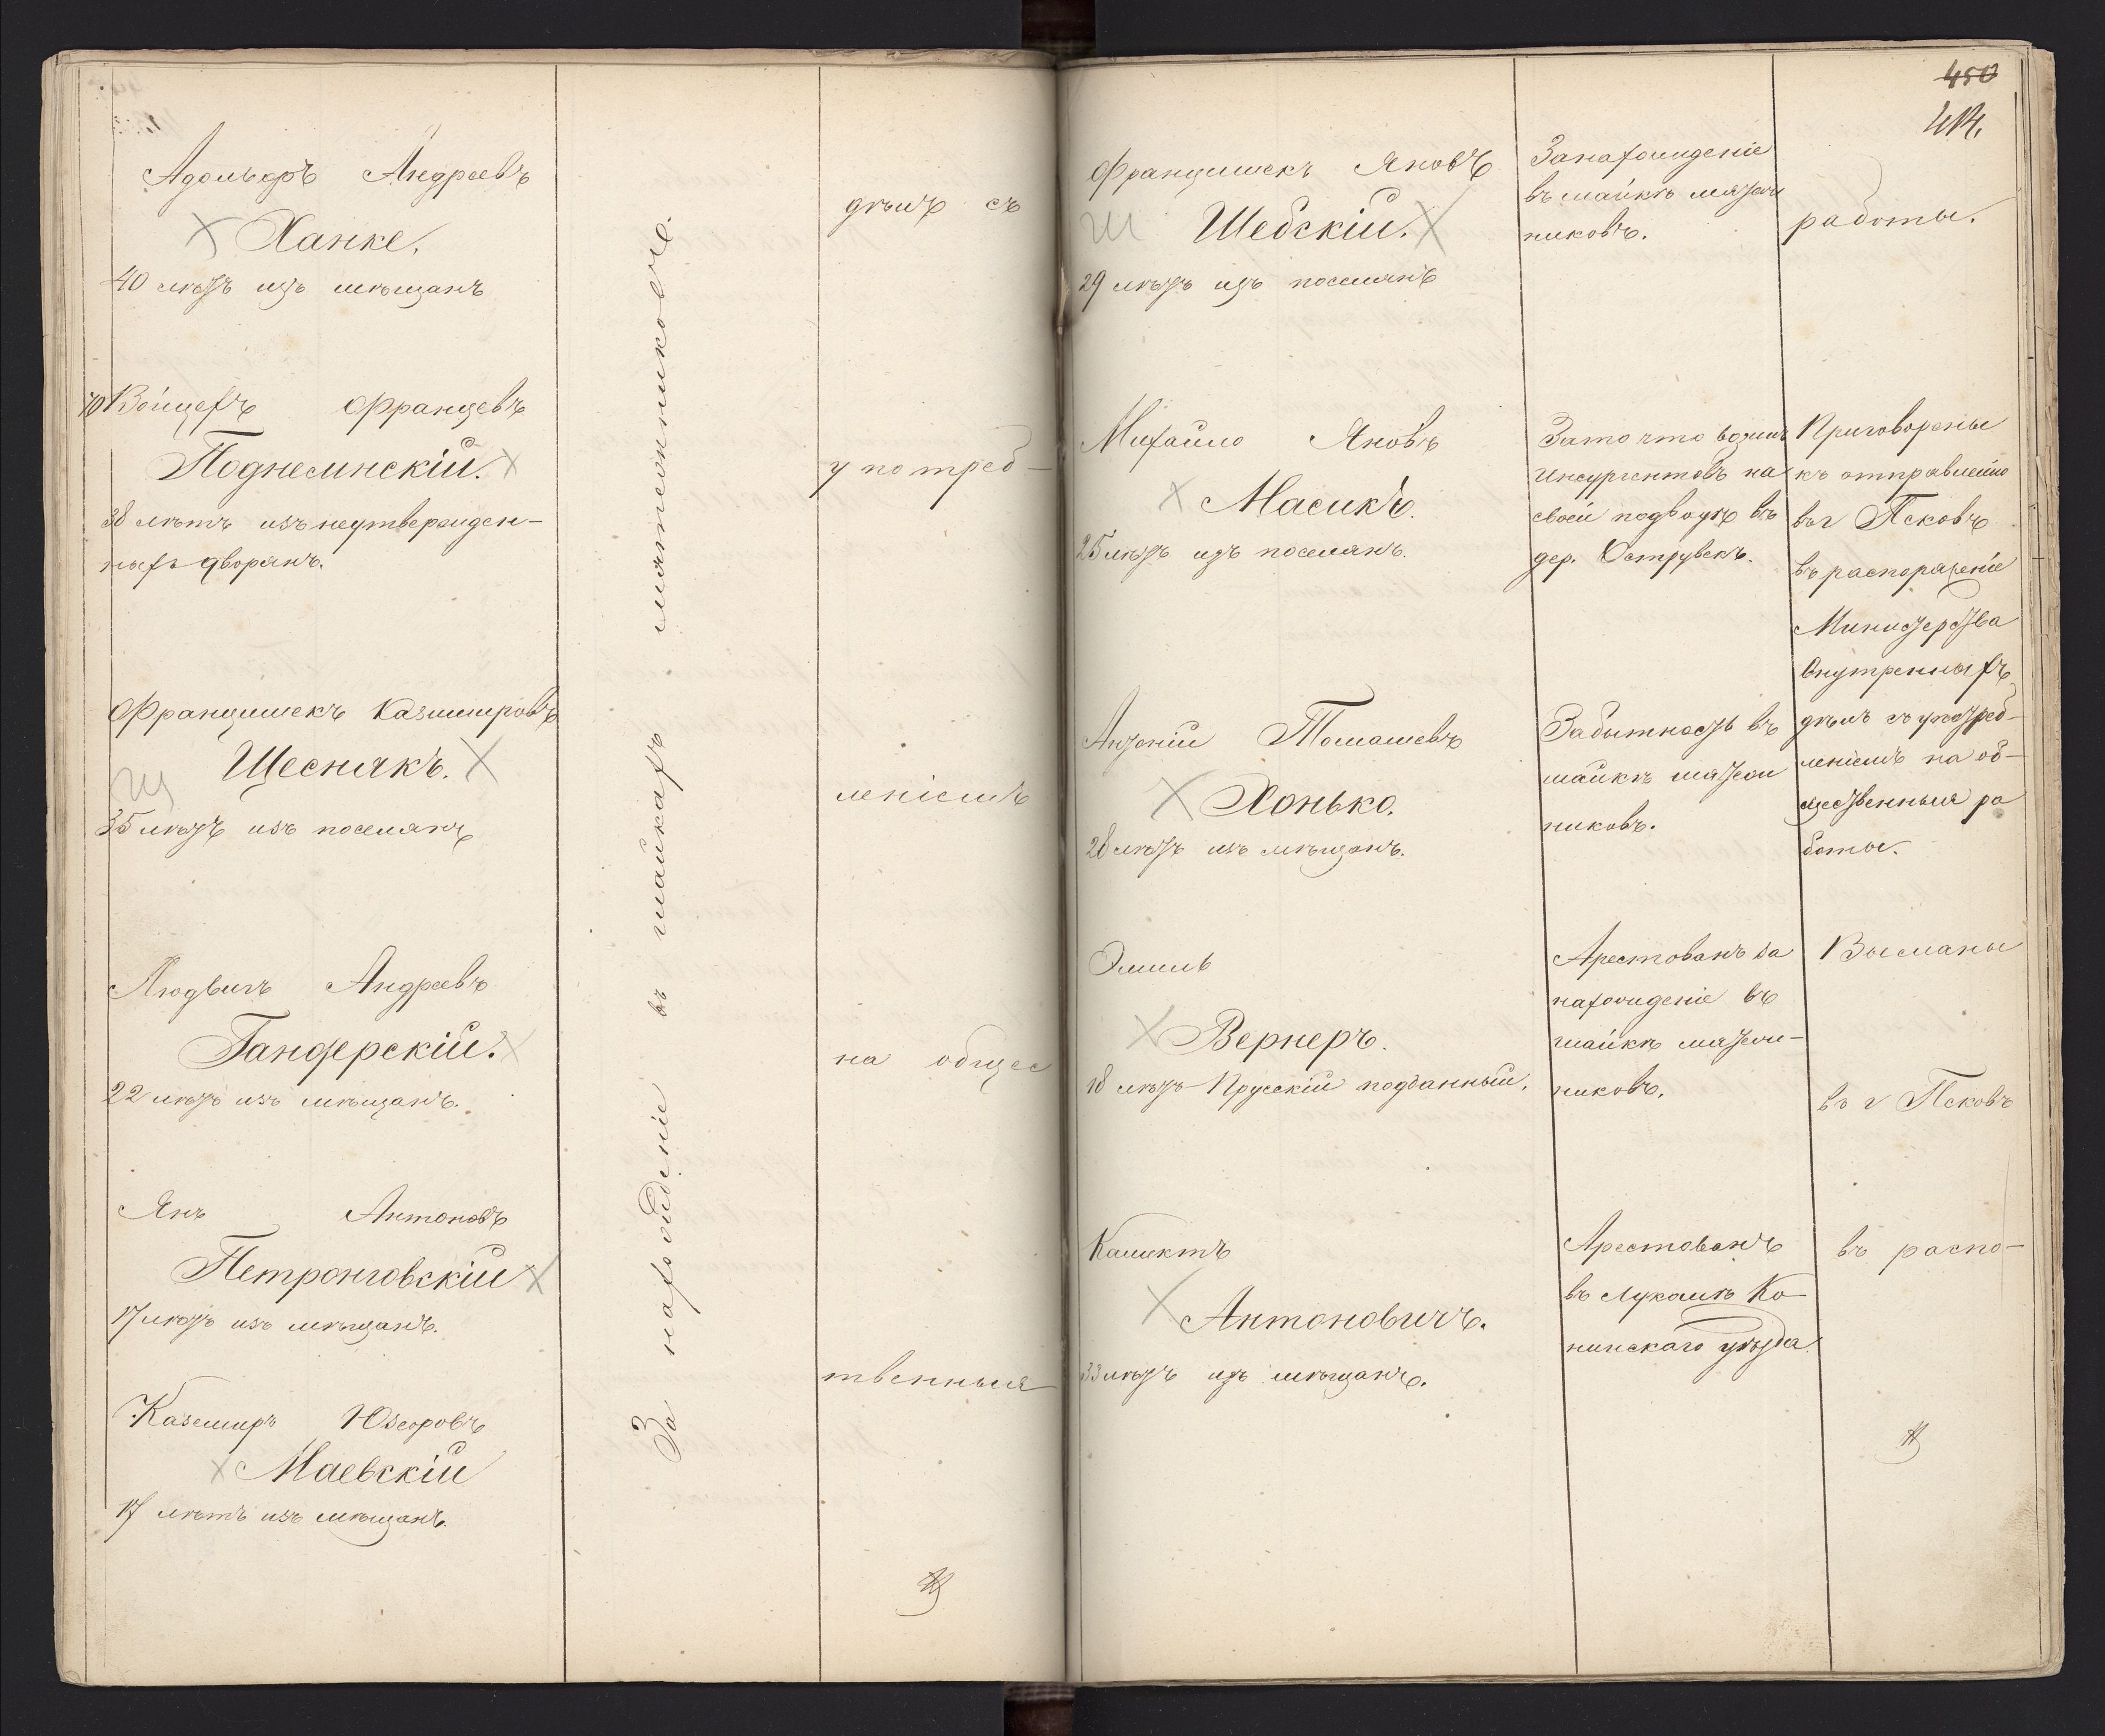 Адольфъ Андреевъ
Ханке.
40 лѣтъ изъ мѣщанъ
Войцехъ Францевъ
38 лѣтъ изъ неутвержден-
ныхъ дворянъ.
Францишекъ Казимировъ
Щеснякъ.
Щ
35 лѣтъ изъ поселянъ
Людвигъ Андреевъ
22 лѣтъ изъ мѣщанъ.
Янъ Антоновъ
Петронговскій
17 лѣтъ изъ мѣщанъ.
Каземиръ Юзефовъ
Маевскій
17 лѣтъ изъ мѣщанъ.
За нахожденіе въ шайкахъ мятежниковъ.
дѣлъ съ
употреб-
леніемъ
на общес
твенныя
450
Францишекъ Яновъ
Ш Шебскій.
29 лѣтъ изъ поселянъ
За нахожденіе
въ шайкѣ мятеж
никовъ.
работы.
Михайло Яновъ
Масикъ.
25 лѣтъ изъ поселянъ.
За то что возилъ
инсургентовъ на
своей подводѣ въ
дер. Острувекъ.
Приговорены
къ отправленію
въ г Псковъ
въ распоряженіе
Министерства
Внутреннихъ
дѣлъ съ употреб-
леніемъ на об-
щественныя ра
боты.
Антоній Томашевъ
Хонько.
28 лѣтъ изъ мѣщанъ.
За бытность въ
шайкѣ мятеж
никовъ.
Эмиль
Вернеръ.
18 лѣтъ Прусскій подданный.
Арестованъ за
нахожденіе въ
шайкѣ мятеж-
никовъ.
Высланы
въ г Псковъ
Каликтъ
Антоновичъ.
33 лѣтъ изъ мѣщанъ.
Арестованъ
въ Лукомѣ Ко-
нинскаго уѣзда.
въ распо-